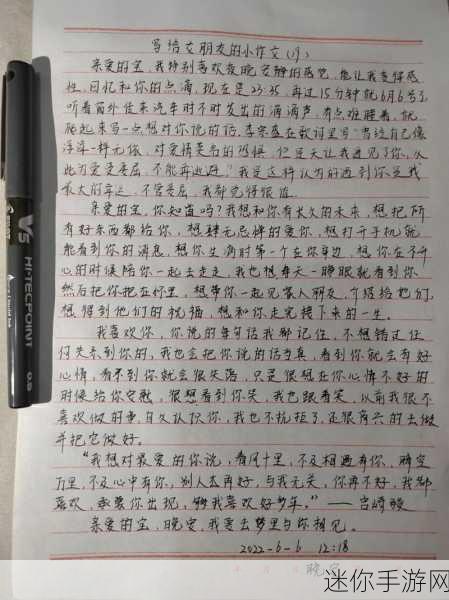 写给女朋友的小作文(19)
亲爱的宝，我特别喜欢夜晚安静的感觉，能让我变得感
性，回忆和你的点滴，现在是23:35，再过15分钟就6月6号了，
听着窗外往来汽车时不时发出的滴滴声，有点难睡着，就
爬起来写一点想对你说的话，李宗盛在歌词里写“曾经自己像
浮萍一样无依，对爱情莫名的恐惧，但是天让我遇见了你，从
此为爱受委屈，不能再逃避。”我是这样认为的遇到你是我
最大的幸运，不管委屈，我都觉得很值。
亲爱的宝，你知道吗？我想和你有长久的未来，想把所
有好东西都给你，想肆无忌惮的爱你，想打开手机就
能看到你的消息，想你生病时第一个在你身边，想你在不开
心的时候陪你一起去走走，我也想每天一睁眼就看到你，
然后把你抱在怀里，想带你一起见家人朋友，介绍给他们，
想得到他们的祝福，想和你走完接下来的一生。
我喜欢你，你说的每句话我都记住，不想错过任
何关于到你的，我也会把你说的话当真，看到你就会有好
心情，看不到你就会很失落，只是很想在你心情不好的
时候给你安慰，很想看到你笑，我也跟着笑，以前我很不
喜欢做的事，自从认识你，我也不抗拒了，还很高兴的去做
并把它做好。
“我想对最爱的你说，春风十里，不及相遇有你，晴空
万里，不及心中有你，别人在再好，与我无关，你再不好，我都
喜欢，感谢你出现，够我喜欢好多年。”——宫崎骏
亲爱的宝，晚安，我要去梦里与你相见。
2022-6-6 12:18
晚安
V5
HI-TECPOINT
0.5
迷你手游网